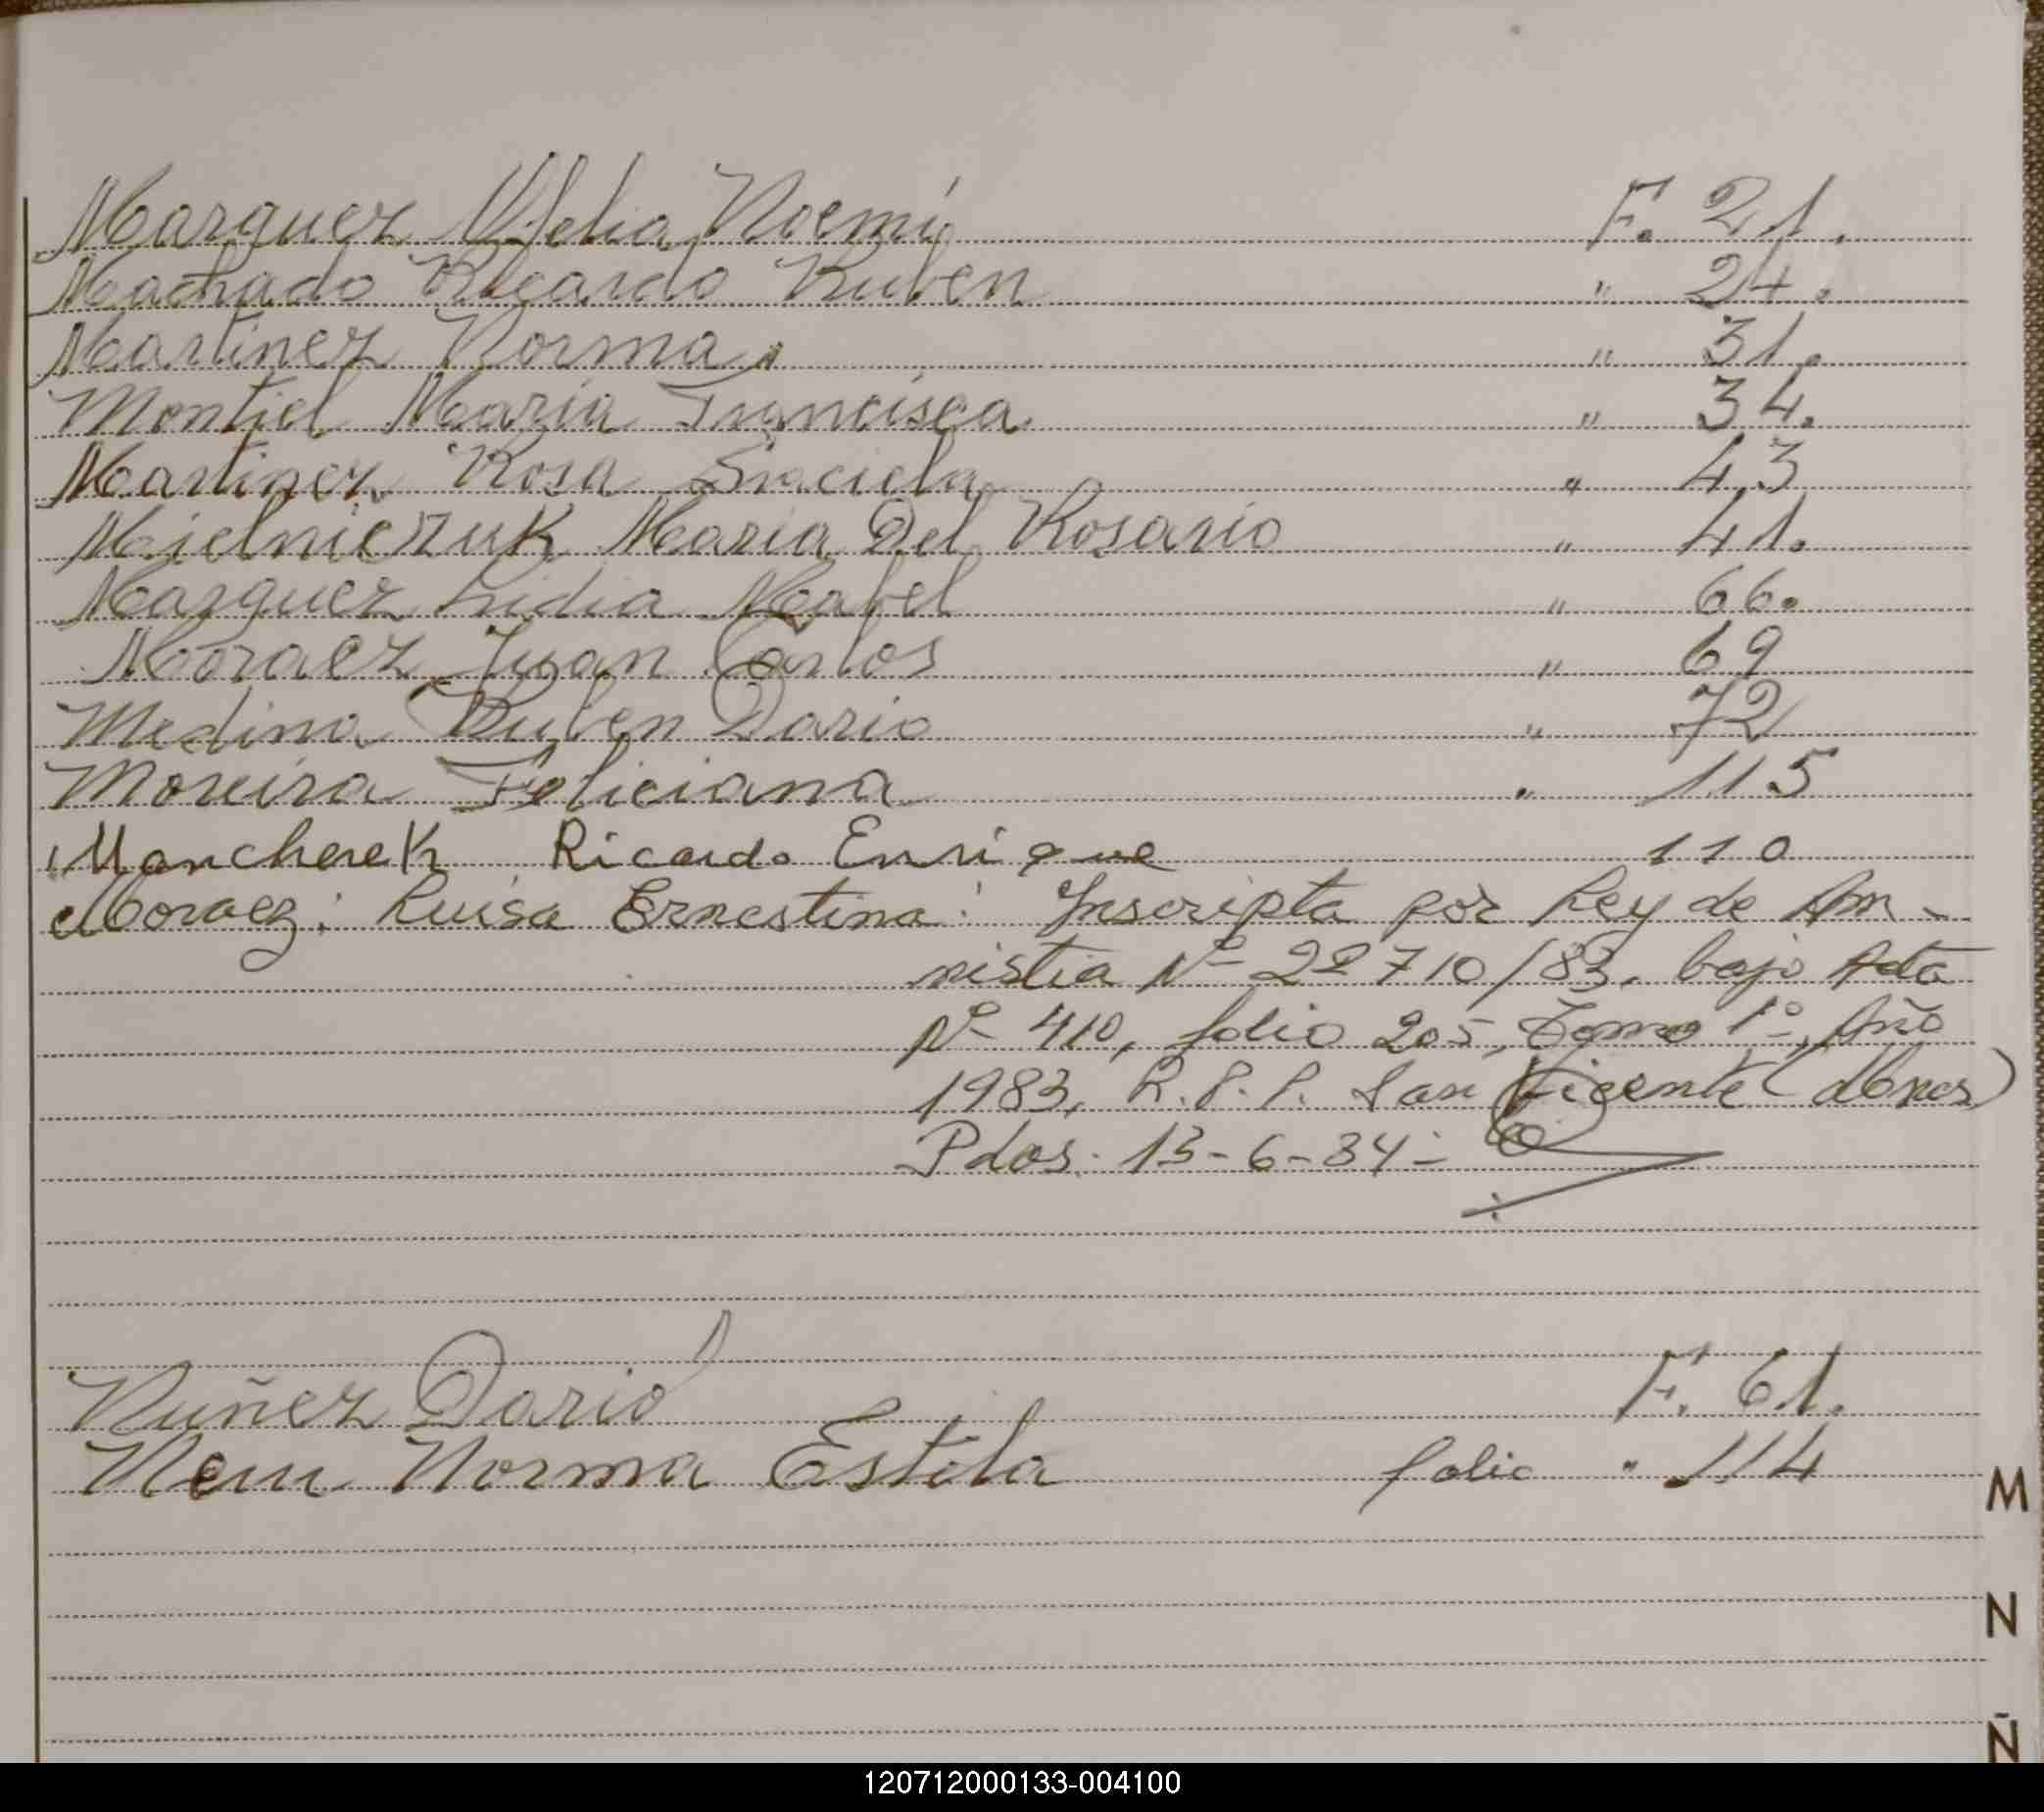 Marquez Ofelia Noemí F. 21.
Machado Ricardo Ruben " 24.
Martinez Norma. " 31.
Montiel Maria Francisca " 34.
Martinez Rosa Graciela " 43
Mielniczuk Maria Del Rosario " 41.
Marquez Lidia Mabel " 66.
Moraez Juan Carlos " 69
Medina Ruben Dario " 72
Moreira Feliciana " 115
Mancherek Ricardo Enrique 110
Moraez; Luisa Ernestina: Inscripta por Ley de Am-
nistia Nº 22710/83, bajo Acta
Nº 410, folio 205, Tomo 1º, Año
1983, R.P.P. San Vicente (Mnes)
Pdas. 13-6-84-
Nuñez Dario F. 61.
Neiu Norma Estela folio " 114
M
N
Ñ
120712000133-004100